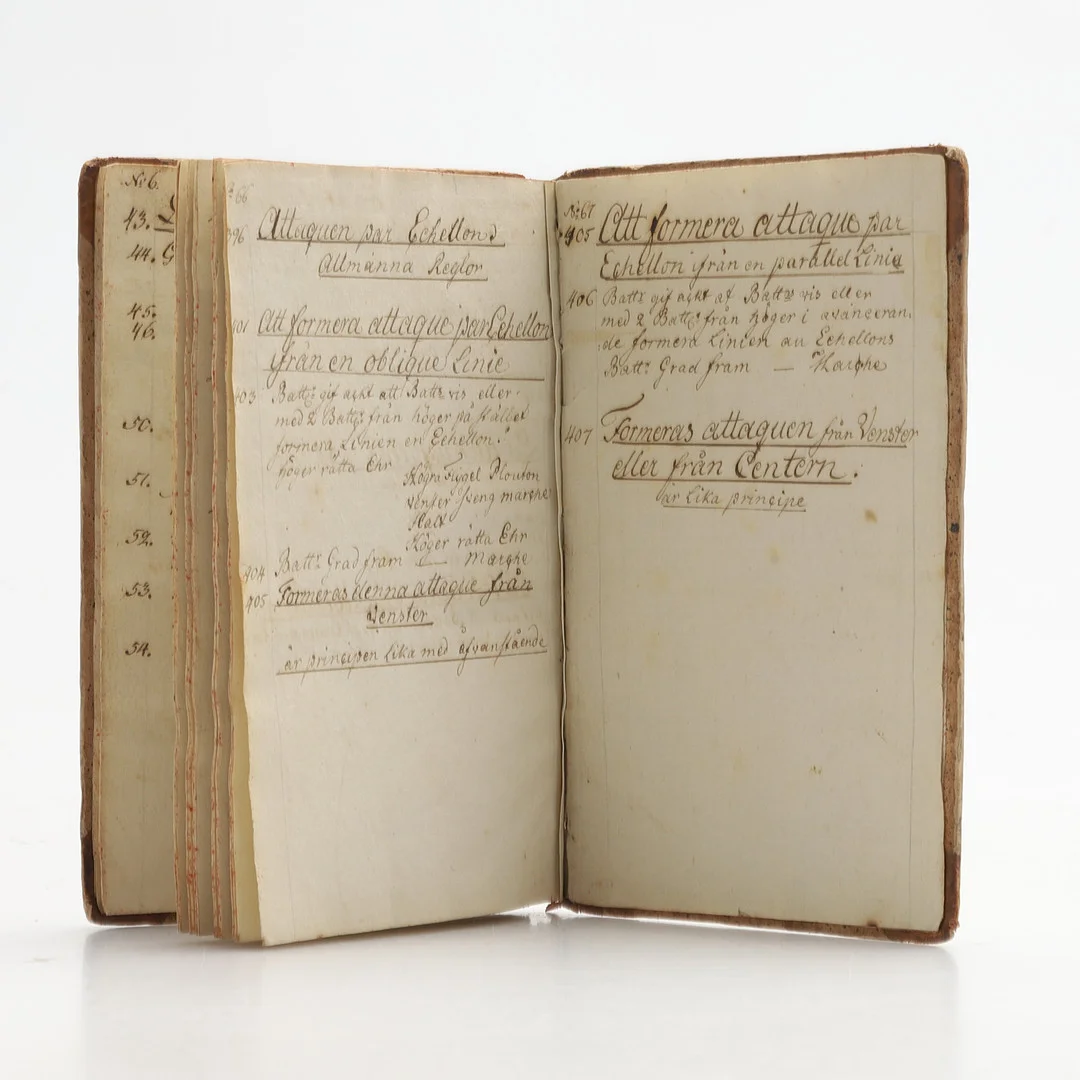 No 6.
43.
44. G
45.
46.
50.
51.
52.
53.
54.
66
396 Attaquen par Echellon?
Allmänna Reglor
401 Att formera attaque par Echellon
ifrån en oblique Linie
403 Battn gif ackt att Battn vis eller
med 2 Battr från höger på stället
formera Linien en Echellon!
höger rätta Ehr Högra Flygel Plouton
venster sveng marche
Halt
Höger rätta Ehr
404 Battn Grad fram — Marche
405 Formeras denna attaque från
Venster
är principen Lika med ofvanstående
No 67
405 Att formera attaque par
Echellon ifrån en parallel Linie
406 Battn gif ackt af Battn vis eller
med 2 Battr från höger i avanceran
de formera Linien au Echellons
Battn Grad fram — Marche
407 Formeras attaquen från Venster
eller från Centern.
är Lika principe